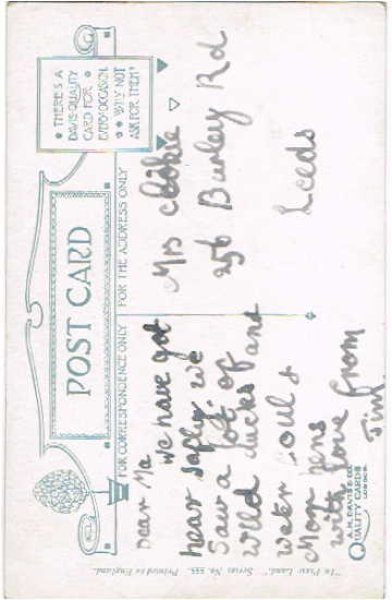 THERE'S A
DAVIS QUALITY
CARD FOR
EVERY OCCASION.
WHY NOT
ASK FOR THEM?
POST CARD
FOR CORRESPONDENCE ONLY
FOR THE ADDRESS ONLY
Dear Ma
we have got
hear safley we
Saw a lot of
wild ducks and
water
Mor hens
with love from
Jim
Mrs
256 Burley Rd
Leeds
A.M. DAVIS & CO.
QUALITY CARDS
LONDON.
"In Poppy Land." Series No. 555. Printed in England.